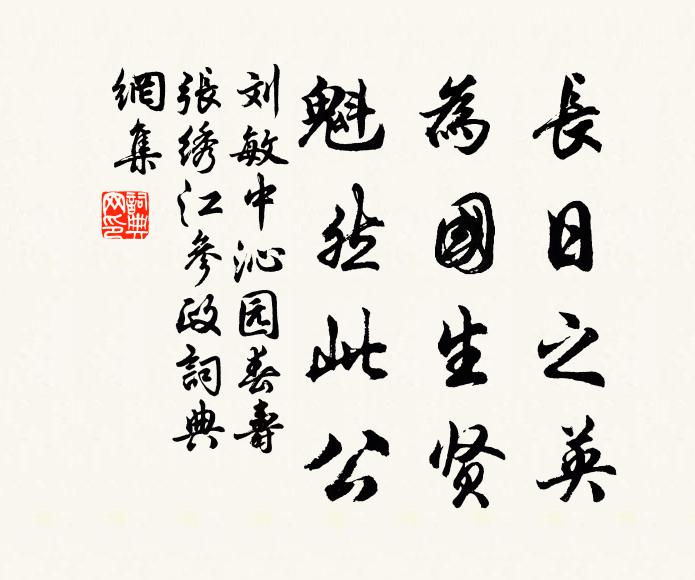 長日之英
為國生贤
魁然此公
刘敏中沁园春壽
張綉江參政詞典
網集
詞典
网印